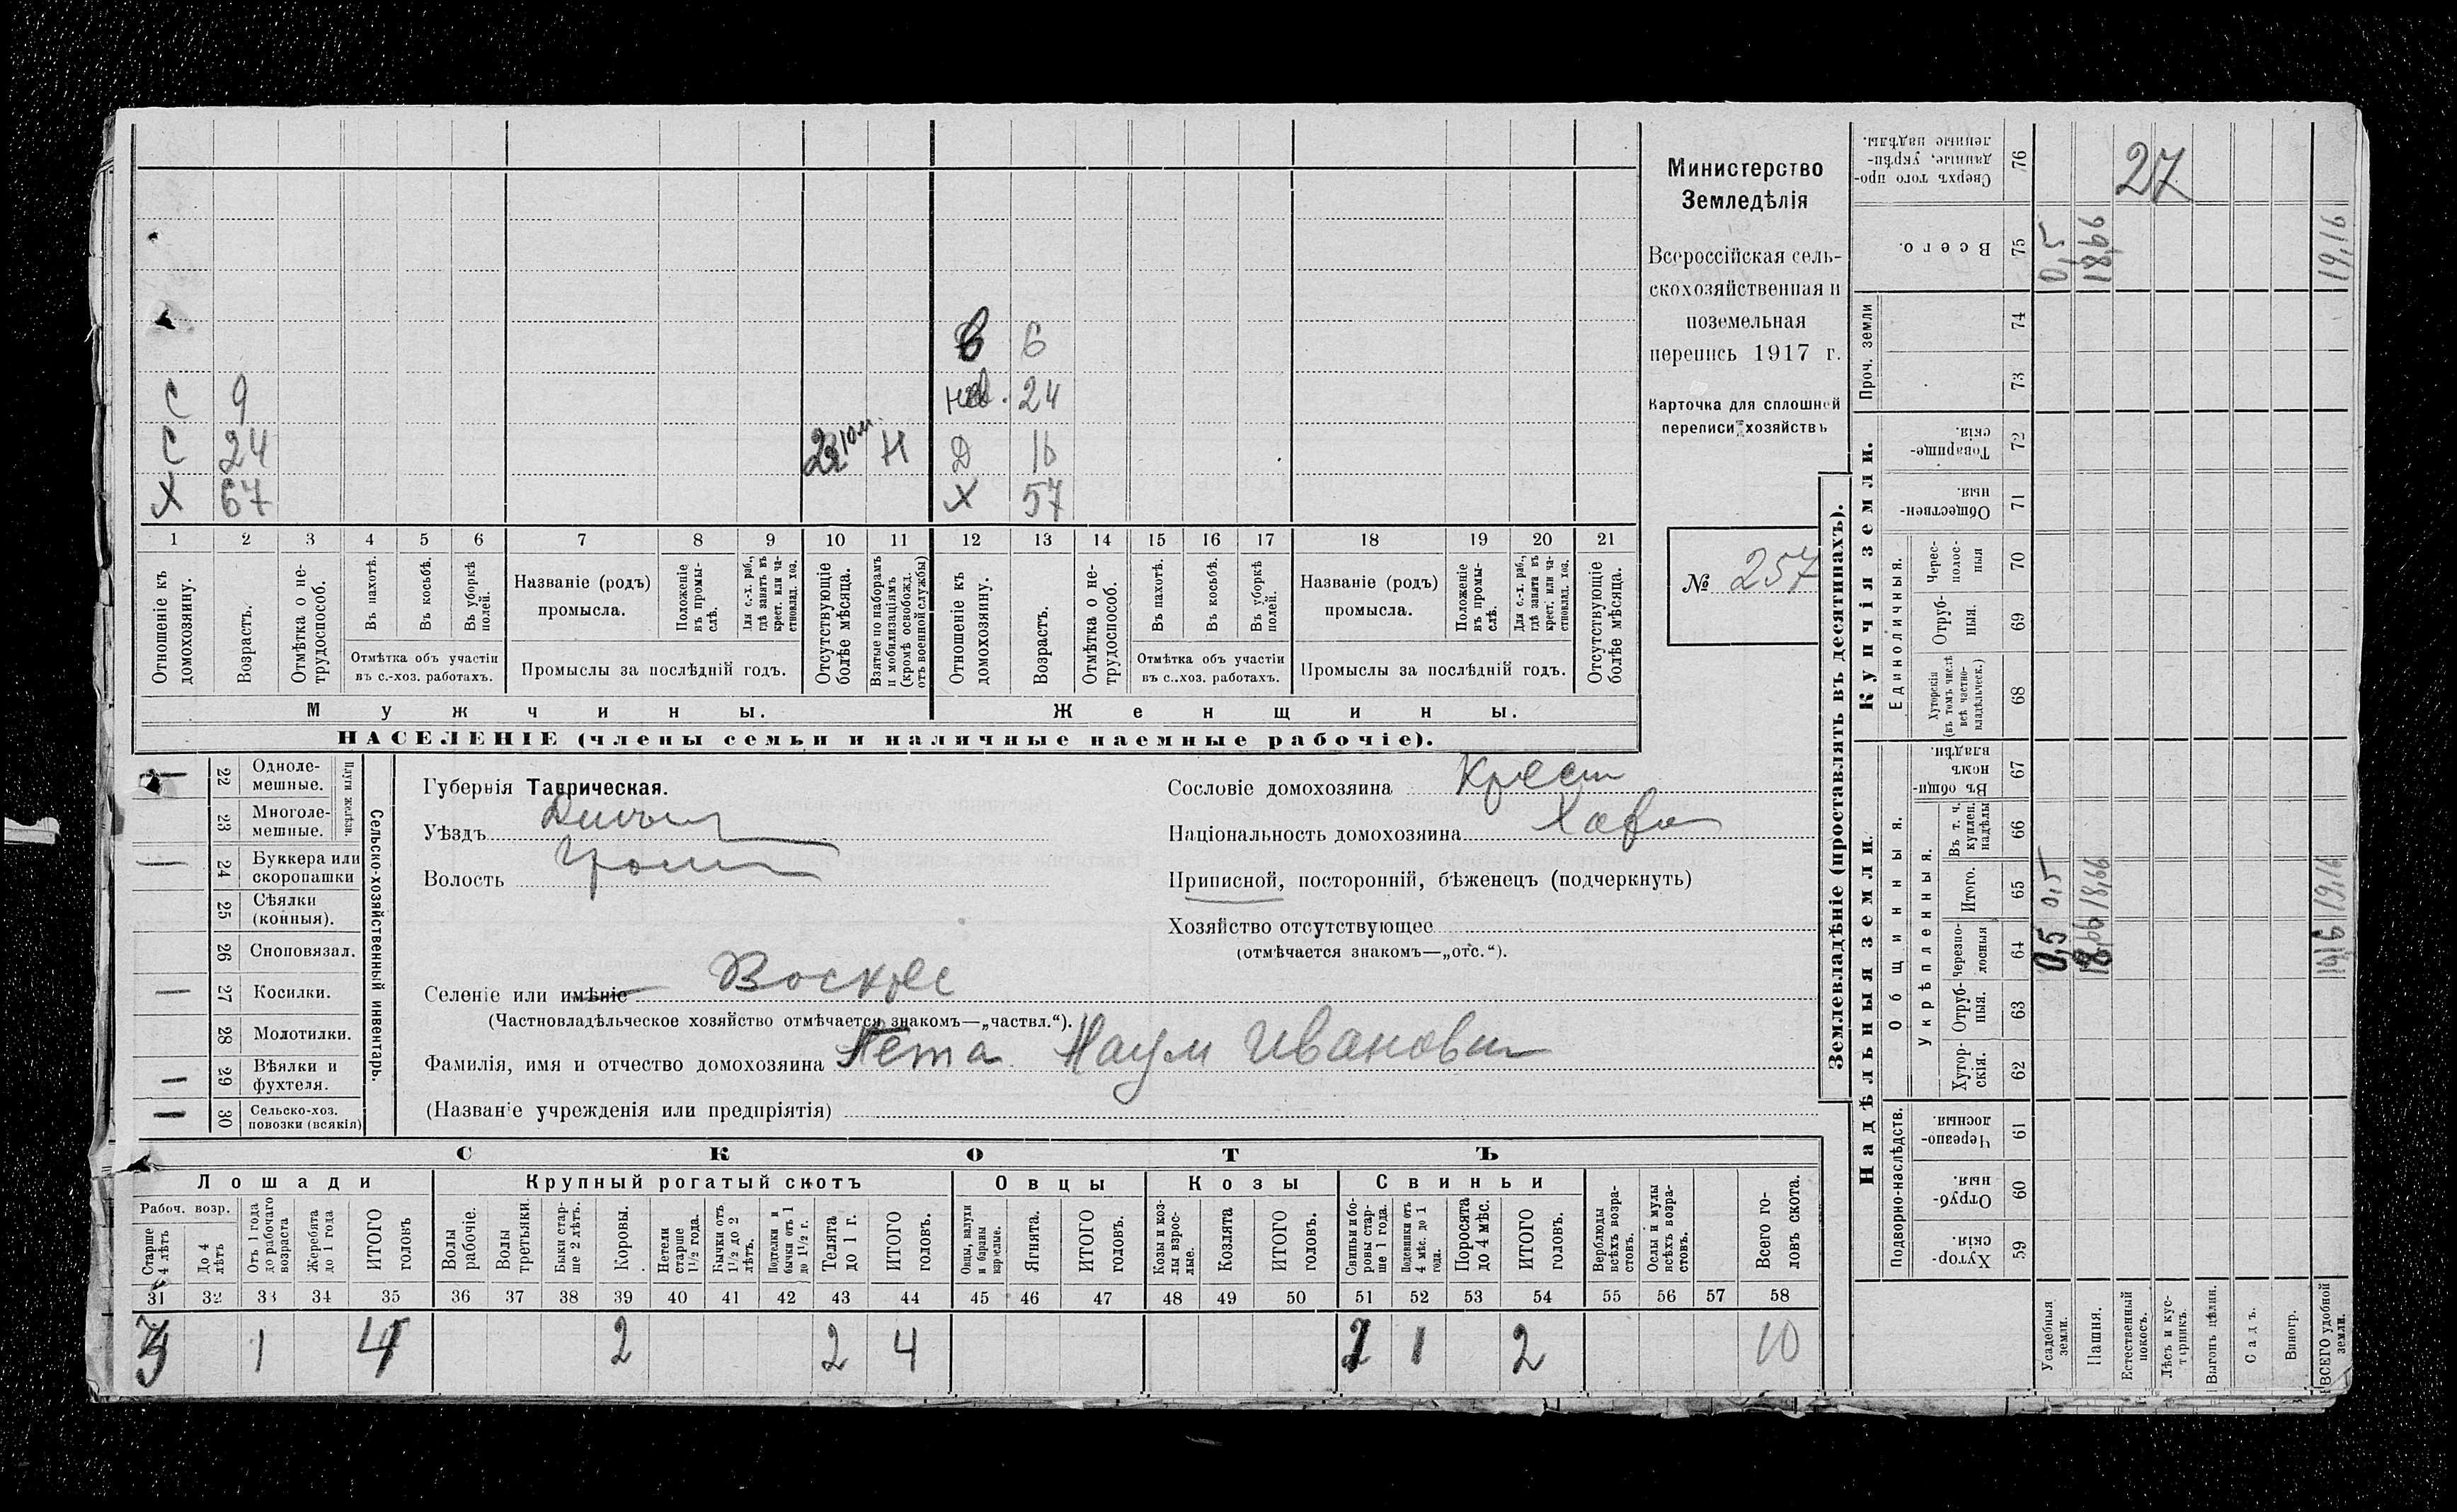 С 9
С 24 22 10 м Н
Х 67
В 6
нев. 24
Д 16
Х 57
1 2 3 4 5 6 7 8 9 10 11 12 13 14 15 16 17 18 19 20 21
Отношеніе къ домохозяину.
Возрастъ.
Отмѣтка о не-трудоспособ.
Въ пахотѣ.
Въ косьбѣ.
Въ уборкѣ полей.
Отмѣтка объ участіи
въ с.-хоз. работахъ.
Названіе (родъ)
промысла.
Положеніе въ промы-слѣ.
Для с.-х. раб., гдѣ занятъ въ крест. или ча-стновлад. хоз.
Промыслы за послѣдній годъ.
Отсутствующіе болѣе мѣсяца.
Взятые по наборамъ и мобилизаціямъ (кромѣ освобожд. отъ военной службы)
Отношеніе къ домохозяину.
Возрастъ.
Отмѣтка о не-трудоспособ.
Въ пахотѣ.
Въ косьбѣ.
Въ уборкѣ полей.
Отмѣтка объ участіи
въ с.-хоз. работахъ.
Названіе (родъ)
промысла.
Положеніе въ промы-слѣ.
Для с.-х. раб., гдѣ занятъ въ крест. или ча-стновлад. хоз.
Промыслы за послѣдній годъ.
Отсутствующіе болѣе мѣсяца.
Мужчины.
Женщины.
НАСЕЛЕНІЕ (члены семьи и наличные наемные рабочіе).
Министерство
Земледѣлія
Всероссійская сель-
скохозяйственная и
поземельная
перепись 1917 г.
Карточка для сплошной
переписи хозяйствъ
№ 257
22 Одноле-мешные.
23 Многоле-мешные.
Плуги желѣзн.
24 Буккера или скоропашки
25 Сѣялки (конныя).
26 Сноповязал.
27 Косилки.
28 Молотилки.
29 Вѣялки и фухтеля.
30 Сельско-хоз. повозки (всякія)
Сельско-хозяйственный инвентарь.
Губернія Таврическая.
Уѣздъ
Волость
Селеніе или имѣніе Воскрес
(Частновладѣльческое хозяйство отмѣчается знакомъ—„частвл.“).
Фамилія, имя и отчество домохозяина Наум Иванович
(Названіе учрежденія или предпріятія)
Сословіе домохозяина Крест
Національность домохозяина
Приписной, посторонній, бѣженецъ (подчеркнуть)
Хозяйство отсутствующее
(отмѣчается знакомъ—„отс.“).
СКОТЪ
Лошади
Крупный рогатый скотъ
Овцы
Козы
Свиньи
Рабоч. возр.
Старше 4 лѣтъ
До 4 лѣтъ
Отъ 1 года до рабочаго возраста
Жеребята до 1 года
ИТОГО головъ
Волы рабочіе.
Волы третьяки.
Быки стар-ше 2 лѣтъ.
Коровы.
Нетели старше 1½ года.
Бычки отъ 1½ до 2 лѣтъ.
Подтелки и бычки отъ 1 до 1½ г.
Телята до 1 г.
ИТОГО головъ.
Овцы, валухи и бараны взрослые.
Ягнята.
ИТОГО головъ.
Козы и коз-лы взрос-лые.
Козлята
ИТОГО головъ.
Свиньи и бо-ровы стар-ше 1 года.
Подсвинки отъ 4 мѣс. до 1 года.
Поросята до 4 мѣс.
ИТОГО головъ.
Верблюды всѣхъ возра-стовъ.
Ослы и мулы всѣхъ возра-стовъ.
Всего го-ловъ скота.
31 32 33 34 35 36 37 38 39 40 41 42 43 44 45 46 47 48 49 50 51 52 53 54 55 56 57 58
3 1 4 2 2 4 1 1 2 10
Землевладѣніе (проставлять въ десятинахъ).
Надѣльныя земли.
Купчія земли.
Проч. земли
Подворно-наслѣдств.
Общинныя.
Укрѣпленныя.
Единоличныя.
Сверхъ того про-данные, укрѣп-ленные надѣлы. 76 27
Всего. 75 0,5 18,66 19,16
74
73
Товарище-скія. 72
Обществен-ныя. 71
Черес-полос-ныя 70
Отруб-ныя. 69
Хуторскія (въ томъ числѣ всѣ частно-владѣльческ.) 68
Въ общин-номъ владѣн. 67
Въ т. ч. куплен. надѣлы 66
Итого. 65 0,5 18,66 19,16
Черезпо-лосныя 64 0,5 18,66 19,16
Отруб-ныя. 63
Хутор-скія. 62
Черезпо-лосныя 61
Отруб-ныя. 60
Хутор-скія. 59
Усадебныя земли.
Пашня.
Естественный покосъ.
Лѣсъ и кус-тарникъ.
Выгонъ цѣлин.
Садъ.
Виногр.
ВСЕГО удобной земли.